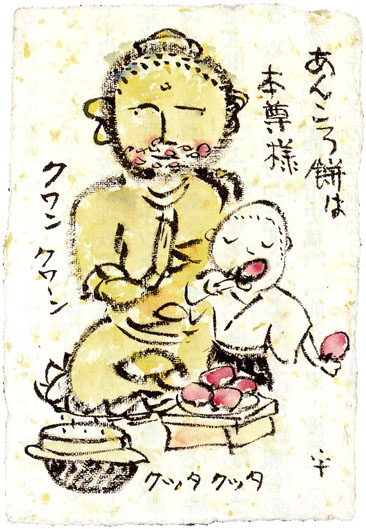 あんころ餅は
本尊様
クワン クワーン
クッタ クッタ